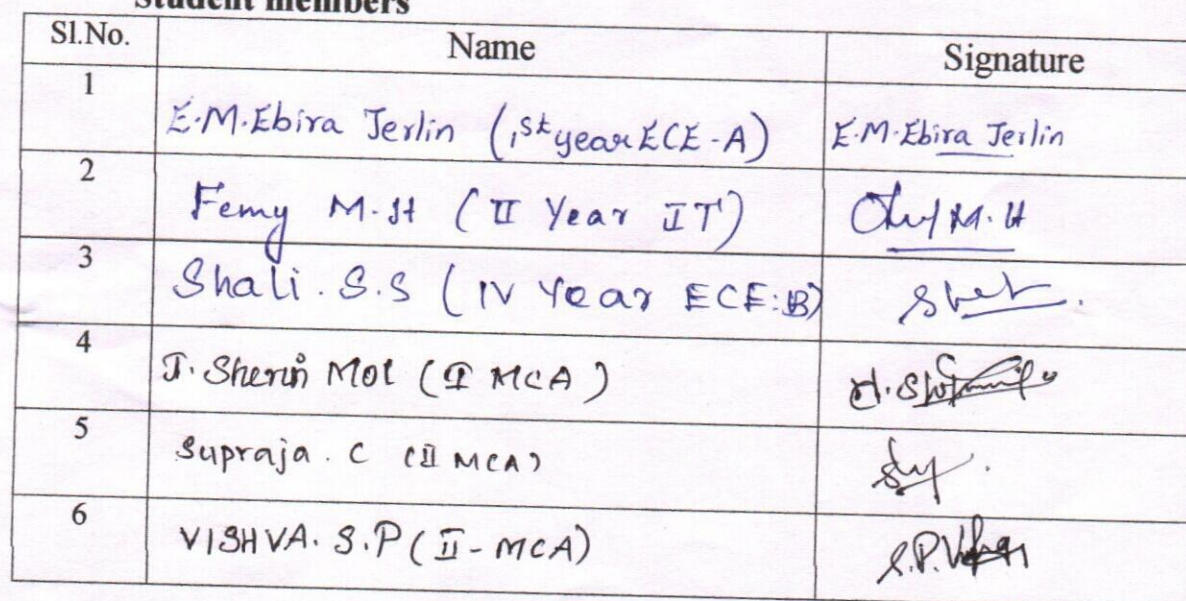 Student members
Sl.No. Name Signature
1 E.M.Ebira Jerlin (1st year ECE-A) E.M.Ebira Jerlin
2 Femy M.H (II Year IT) M.H
3 Shali . S.S (IV Year ECE:B)
4 J. Sherin Mol (I MCA)
5 Supraja . C (II MCA)
6 VISHVA. S.P (II - MCA) S.P.